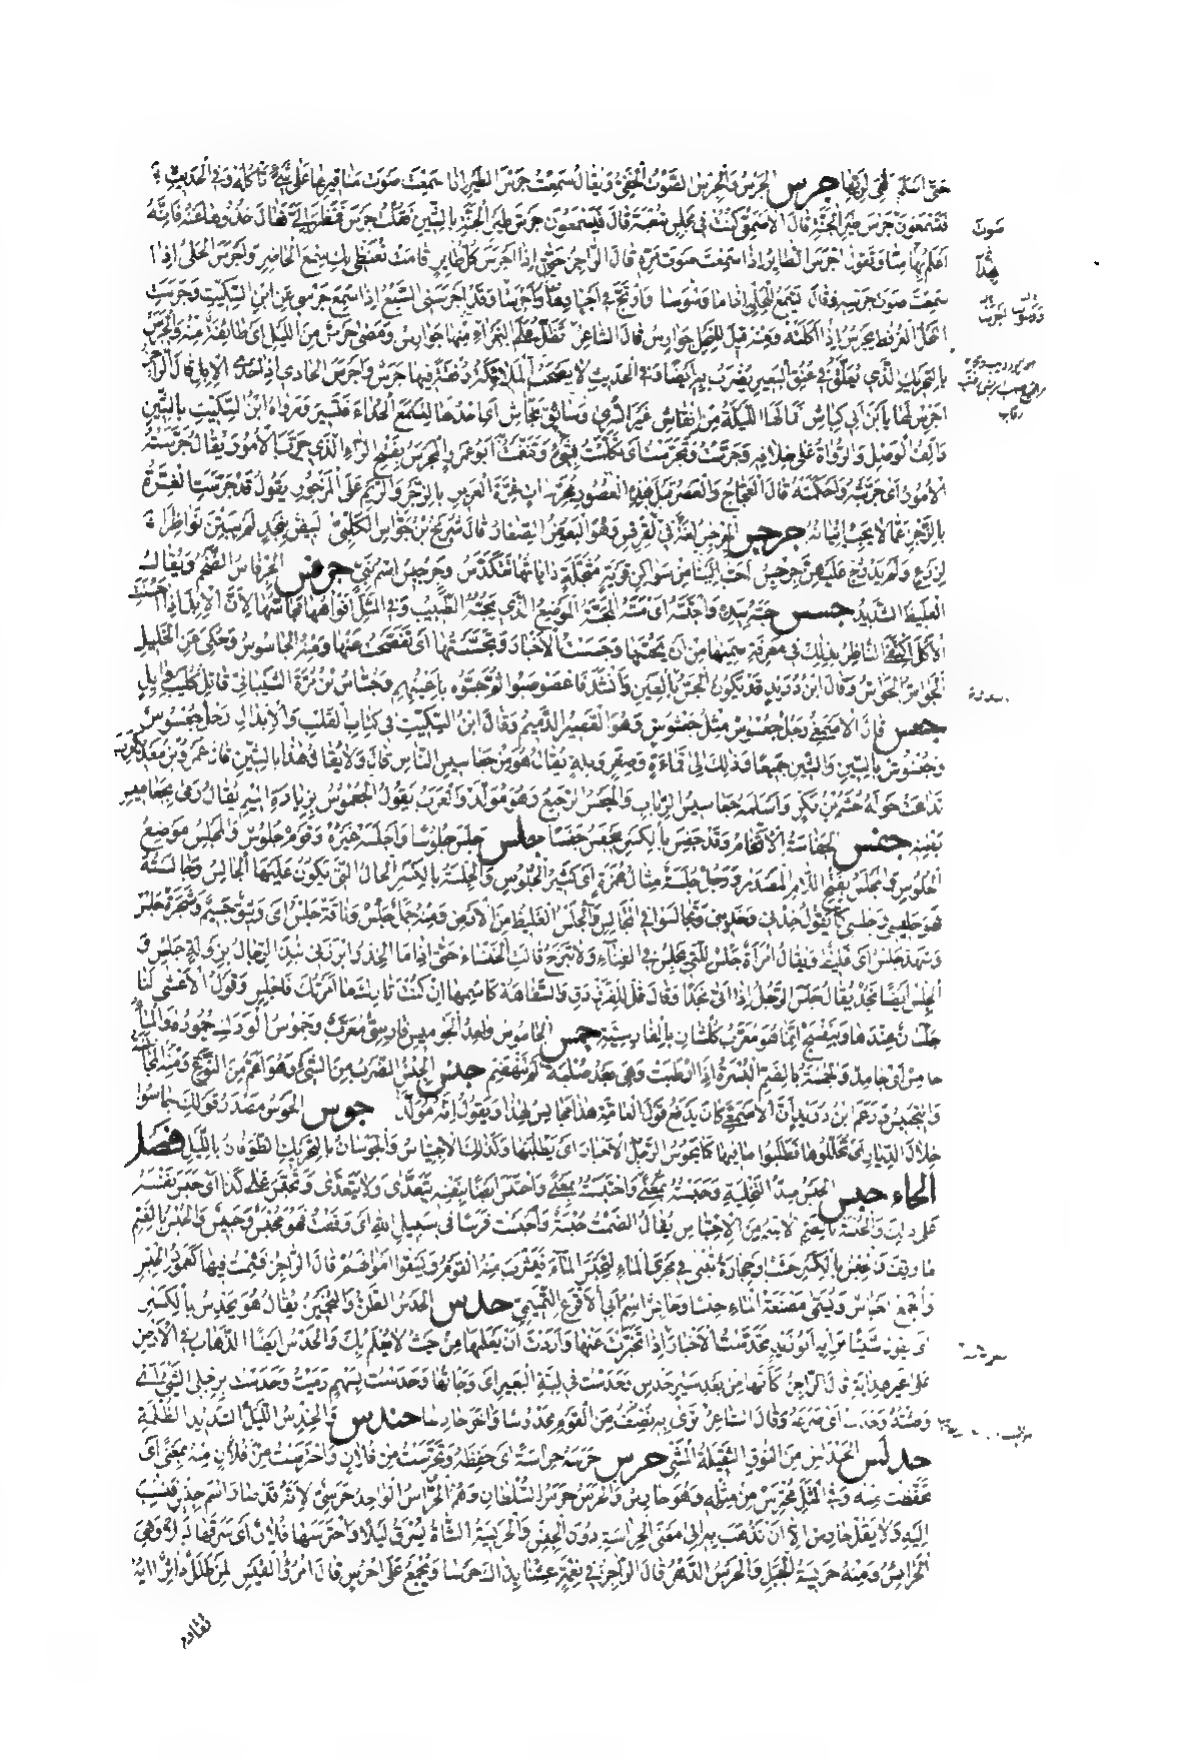 جرس الجَرْسُ والجِرْسُ الصَّوْتُ الخَفِيُّ ويقال سمعت جَرْسَ الطير إذا سمعت صوت مناقيرها على شيء تأكله وفي الحديث
فتسمعون جَرْسَ طير الجنة قال الأصمعي كنت في مجلس شعبة قال فيسمعون جرش طير الجنة بالشين فقلت جرس فنظر إليّ فقال خذوها عنه فإنه
أعلم بهذا منا وتقول أجرس الطائر إذا سمعت صوت مَرِّه قال الراجز حتى إذا أجرس كل طائر قامت تعنظي بك سمع الحاضر وأجرس الحلي إذا
سمعت صوت جرسه وقال تسمع للحلي إذا ما وسوسا وارتج في أجيادها وأجرسا وقد أجرسني السبع إذا سمع جرسي عن ابن السكيت وجرست
النحل العرفط تجرس إذا أكلته ومنه قيل للنحل جوارس قال الشاعر تظل على الثمراء منها جوارس ومضى جرس من الليل أي طائفة منه والجرس
بالتحريك الذي يعلق في عنق البعير يضرب به أيضا وفي الحديث لا تصحب الملائكة رفقة فيها جرس وأجرس الحادي إذا حدا الإبل قال الراجز
أجرس لها يا ابن أبي كباش فما لها الليلة من إنفاش غير السرى وسائق نجاش أي احد لها لتسمع الحداء فتسير ورواه ابن السكيت بالشين
وألف الوصل والرواة على خلافه وجرست وتجرست أي تكلمت بشيء وتنغمت أبو عمرو المجرس بفتح الراء الذي جرب الأمور ويقال جرسته
الأمور أي جربته وأحكمته قال العجاج والعصر قبل هذه العصور مجرسات غرة الغرير بالزجر والريم على المزجور يقول قد جرست الغرة
بالزجر عما لا يجب إتيانه جرجس الجرجس لغة في القرقس وهو البعوض الصغار قال شريح بن جواس الكلبي لبيض بنجد لم يبتن نواظرا
لزرع ولم يدرج عليهن جرجس أحب إلينا من سواكن قرية مثجلة داياتها تتكدس وجرجيس اسم نبي جرفس الجرفاس الضخم ويقال
الغليظ الشديد جسس جسه بيده واجتسه أي مسه المجسة الموضع الذي يجسه الطبيب وفي المثل أفواهها مجاسها لأن الإبل إذا أحسنت
الأكل اكتفى الناظر بذلك في معرفة سمنها من أن يجسها وجسست الأخبار وتجسستها أي تفحصت عنها ومنه الجاسوس وحكي عن الخليل
الجواس الحواس وقال ابن دريد قد يكون الجس بالعين وأنشد فاعصوصبوا ثم جسوه بأعينهم وجساس بن مرة الشيباني قاتل كليب وائل
جعس قال الأصمعي رجل جعسوس مثل جعشوش وهو القصير الدميم وقال ابن السكيت في كتاب القلب والإبدال رجل جعسوس
وجعشوش بالسين والشين جميعا وذلك إلى قماءة وصغر وقلة يقال هو من جعاسيس الناس قال ولا يقال في هذا بالشين قال عمرو بن معدي كرب
تداعت حوله جشم بن بكر وأسلمه جعاسيس الرباب والجعس الرجيع وهو مولد والعرب تقول الجعموس بزيادة الميم يقال رمى بجعاميس
بطنه جفس الجفاسة الاتخام وقد جفس بالكسر يجفس جفسا جلس جلس جلوسا وأجلسه غيره وقوم جلوس والمجلس موضع
الجلوس والمجلس بفتح اللام المصدر ورجل جلسة مثال همزة أي كثير الجلوس والجلسة بالكسر الحال التي يكون عليها الجالس وجالسته
فهو جلسي وجليسي كما تقول خدني وخديني وتجالسوا في المجالس والجلس الغليظ من الأرض ومنه جمل جلس وناقة جلس أي وثيق جسيم وشجرة جلس
وشهد جلس أي غليظ ويقال امرأة جلس للتي تجلس في الفناء ولا تبرح قالت الخنساء حتى إذا ما الخدر أبرزني نبذ الرجال بزولة جلس و
الجلس أيضا نجد يقال جلس الرجل إذا أتى نجدا وقال قل للفرزدق والسفاهة كاسمها إن كنت تارك ما أمرتك فاجلس وقول الأعشى لنا
جلسان عندها وبنفسج إنما هو معرب كلشان بالفارسية جمس الجاموس واحد الجواميس فارسي معرب وجموس الودك جموده والماء
جامس أي جامد والجمسة بالضم البسرة إذا أرطبت وهي بعد صلبة لم تنهضم جنس الجنس الضرب من الشيء وهو أعم من النوع ومنه المجانسة
والتجنيس وزعم ابن دريد أن الأصمعي كان يدفع قول العامة هذا مجانس لهذا ويقول إنه مولد جوس الجوس مصدر قولك جاسوا
خلال الديار أي تخللوها فطلبوا ما فيها كما يجوس الرجل الأخبار أي يطلبها وكذلك الاجتياس والجوسان بالتحريك الطوفان بالليل فصل
الحاء حبس الحبس ضد التخلية وحبسته بمعنى واحتبسته بمعنى واحتبس أيضا بنفسه يتعدى ولا يتعدى وتحبس على كذا أي حبس نفسه
على ذلك والحبسة بالضم الاسم من الاحتباس يقال الصمت حبسة وأحبست فرسا في سبيل الله أي وقفت فهو محبس وحبيس والحبس بالضم
ما وقف والحبس بالكسر خشب وحجارة تبنى في مجرى الماء لتحبس الماء فيشرب منه القوم ويسقوا أموالهم قال الراجز فشمت فيها كعمود الحبس
والجمع أحباس وتسمى مصنعة الماء حبسا وحابس اسم أبي الأقرع التميمي حدس الحدس الظن والتخمين يقال هو يحدس بالكسر
أي يقول شيئا برأيه أبو زيد تحدست الأخبار إذا تخبرت عنها وأردت أن تعلمها من حيث لا يعلم بك والحدس أيضا الذهاب في الأرض
على غير هداية قال الراجز كأنها من بعد سير حدس وحدست في لبة البعير أي وجأتها وحدست بسهم رميت وحدست برجلي الشيء أي
وطئته وحدس أي صرعه وقال الشاعر ترى به نصيف من القوم محدوسا وآخر حادسا حندس الحندس الليل الشديد الظلمة
حدلس الحندلس من النوق الثقيلة المشي حرس حرسه حراسة أي حفظه وتحرست من فلان واحترست من فلان منه بمعنى أي
تحفظت منه وفي المثل محترس من مثله وهو حارس والحرس حرس السلطان وهم الحراس الواحد حرسي لأنه قد صار اسم جنس فنسب
إليه ولا تقل حارس إلا أن تذهب به إلى معنى الحراسة دون الجنس والحريسة الشاة تسرق ليلا واحترسها فلان أي سرقها ليلا وهي
الحرائس ومنه حريسة الجبل والحرس الدهر قال الراجز في نعمة عشنا بذاك حرسا ويجمع على أحرس قال امرؤ القيس لمن طلل داثر آيه
تقادم